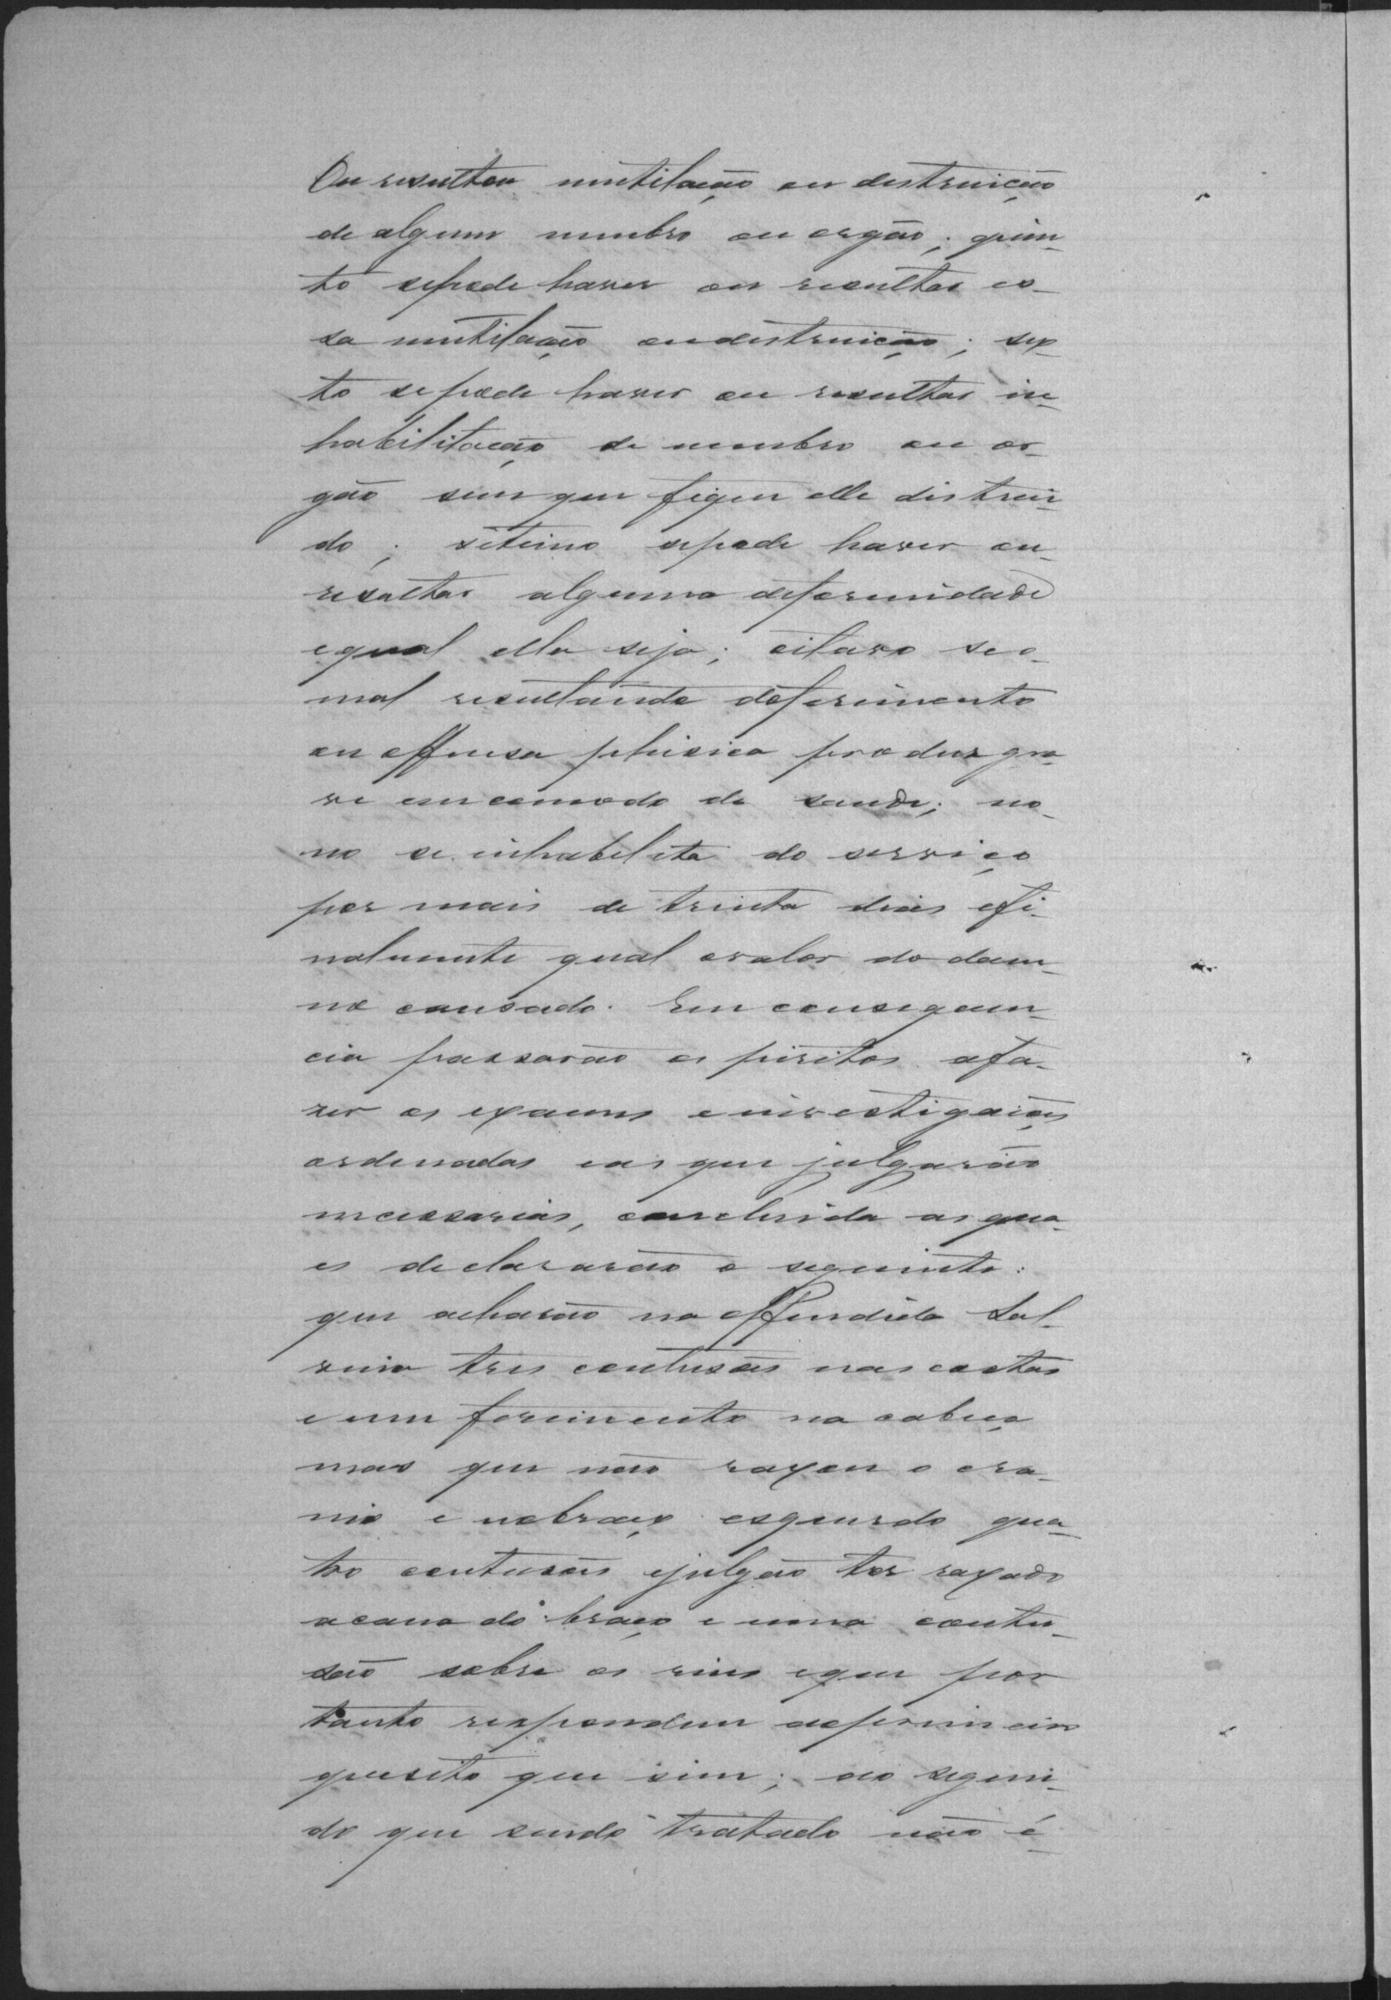 Ou resultou mutilação ou destruição
de algum membro ou orgão; quin-
to sepode haver ou resultar es-
sa mutilação oudistruição; sex-
to se pode haver ou resultar in-
habilitação de membro ou or-
gão sem que fique elle distrui-
do; sitimo sepode haver ou
resultar alguma deformidade
equal ella seja; oitavo se o
mal resultando doferimento
ou offensa phisica produz gra-
ve emcomodo de saude; no-
no se inhabelita do serviço
por mais de trinta dias efi-
nalmente qual ovalor do dam-
no causado. Em consequen-
cia passarão os piritos afa-
zer os exames einvestigações
ordenadas eas que julgarão
necessarias, concluida as qua-
es declararão o seguinte:
que acharão no offendido Sal-
vino tres contusões nas costas
e um ferimento na cabeça
mas que não raxou o cra-
nio e nobraço esquerdo qua-
tro contusões ejulgão ter raxado
acana do braço e uma contu-
são sobre os rins eque por
tanto respondem aoprimeiro
quesito que sim; ao segun-
do que sendo tratado não é